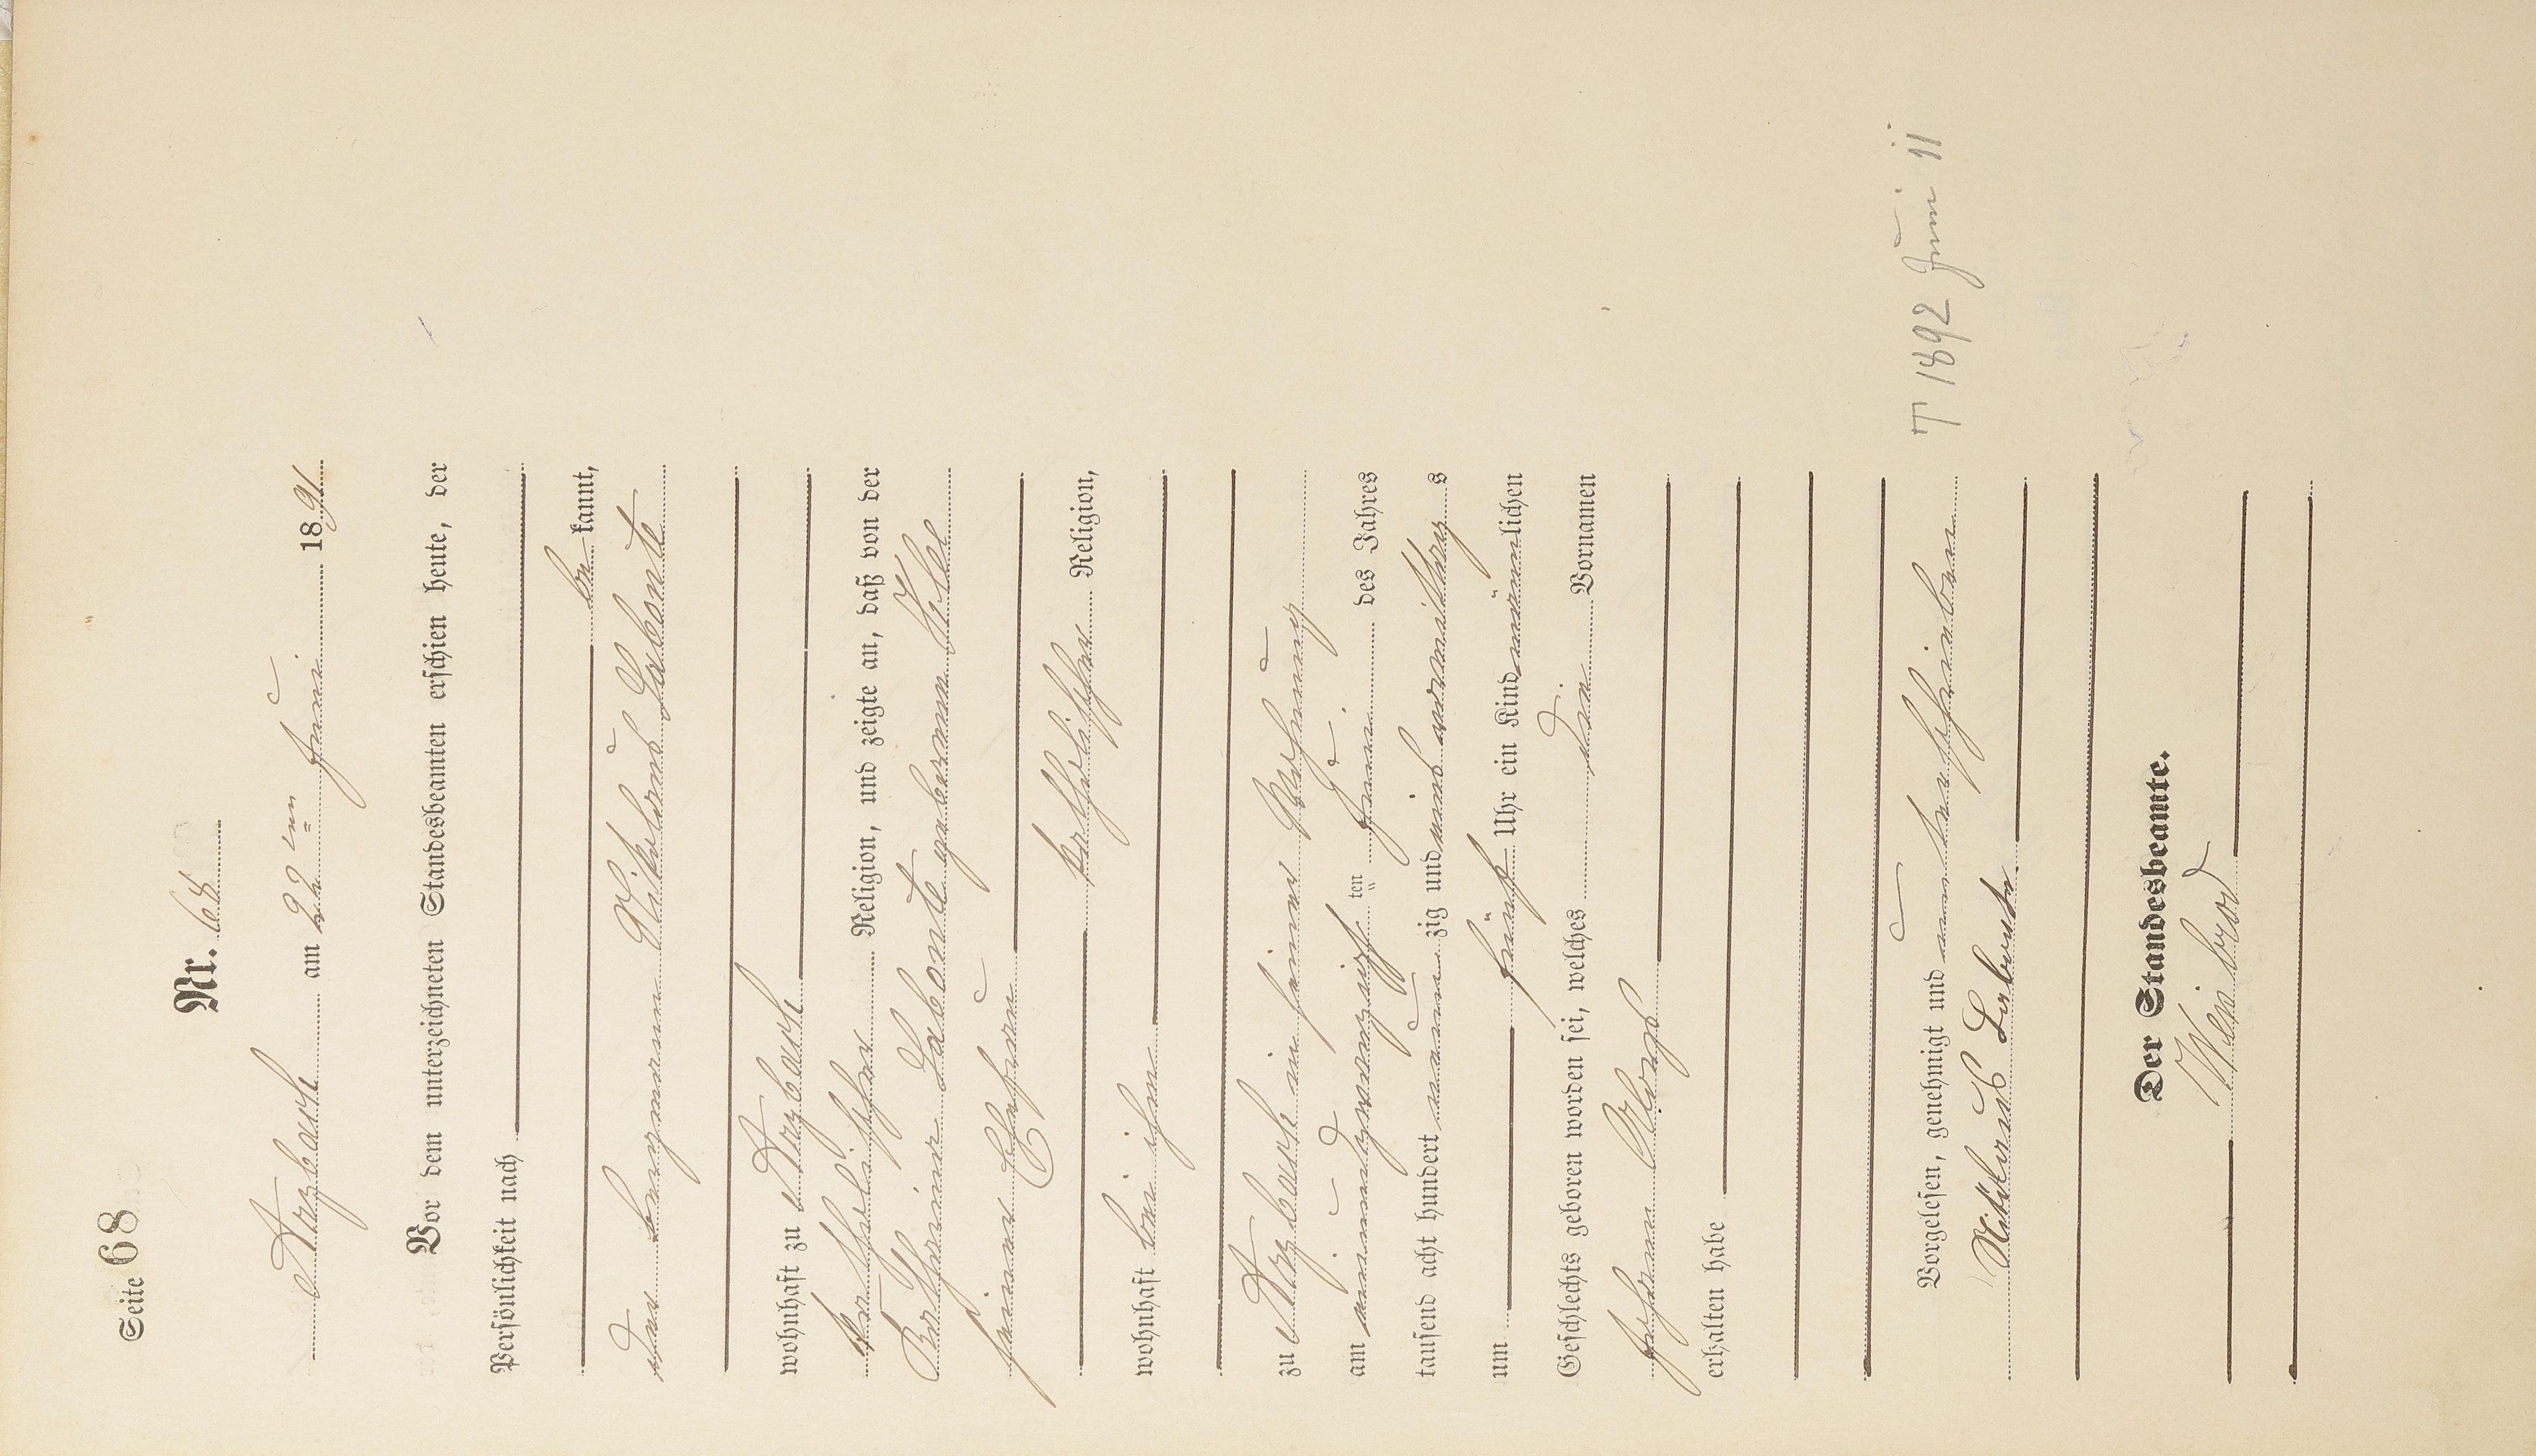 Seite 68
Nr. 68
Arzbach am 22ten Juni 1891
Vor dem unterzeichneten Standesbeamten erschien heute, der
Persönlichkeit nach
be kannt,
der Bergmann Nikolaus Labonte
wohnhaft zu Arzbach
katholischer Religion, und zeigte an, daß von der
Katharina Labonte geborenen
seiner Ehefrau
katholischer Religion,
wohnhaft bei ihm
zu Arzbach in seiner Wohnung
am einundzwanzigsten ten Juni des Jahres
tausend acht hundert neun zig und eins vormittags s
um fünf Uhr ein Kind männlichen
Geschlechts geboren worden sei, welches die Vornamen
Johann Aloys
erhalten habe
Vorgelesen, genehmigt und unterschrieben
Nikolaus Labonte
† 1892 Juni 11
Der Standesbeamte.